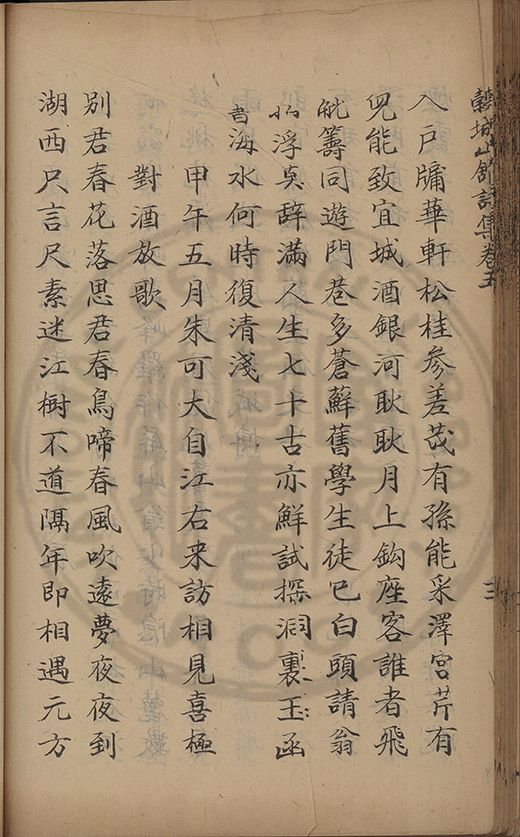 穀城山館詩集卷五
三
入戸牖華軒松桂參差茂有孫能采澤宮芹有
兒能致宜城酒銀河耿耿月上鈎座客誰者飛
觥籌同遊門巷多蒼蘚舊學生徒已白頭請翁
浮莫辭滿人生七十古亦鮮試探洞裏玉函
書海水何時復清淺
甲午五月朱可大自江右来訪相見喜極
對酒放歌
別君春花落思君春鳥啼春風吹遠夢夜夜到
湖西只言尺素迷江樹不道隔年即相遇元方